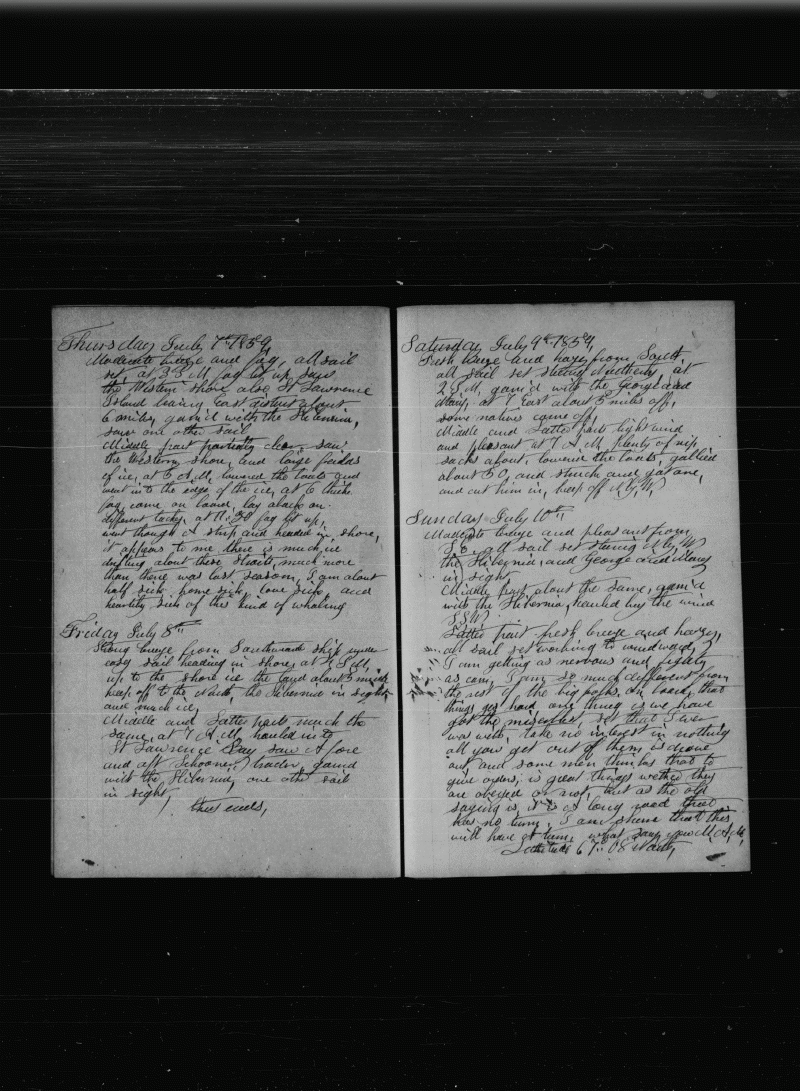 Thursday July 7th 1859,
Moderate breeze and fog, all sail
set, at 3 P.M. fog lit up, saw
the Western shore also St Lawrence
Island bearing East distant about
6 miles, gam'd with the Hibernia,
saw one other sail
Middle part partially clear, saw
the Western shore, and large fields
of ice, at 5 A.M. lowered the boats and
went into the edge of the ice, at 6 thick
fog came on board, lay aback on
different tacks, at 11.30 fog lit up,
went though a strip and headed in shore,
it appears to me there is much ice
drifting about these Straits, much more
than there was last season, I am about
half sick, home sick, love sick, and
heartily sick of this kind of whaling
Friday July 8th
Strong breeze from Southward ship under
easy sail heading in shore, at 1 P.M.
up to the shore ice the land about 3 miles
keep off to the North, the Hibernia in sight
and much ice,
Middle and Latter parts much the
same, at 7 A.M. hauled into
St Lawrence Bay saw A fore
and aft Schooner, trader, gamd
with the Hibernia, one other sail
in sight,
thus ends,
Saturday July 9th 1859,
Fresh breeze and hazy from South,
all sail set steering Northerly, at
2 P.M. gam'd with the George and
Mary, at 7 East about 5 miles off,
some natives came off,
Middle and Latter parts light wind
and pleasant at 7 A.M. plenty of
about, lowered the boats, gallied
about 30, and struck and got one,
and cut him in, keep off N, by, W,
Sunday July 10th
Moderate breeze and pleasant from
S.E. all sail set steering N, by, W
the Hibernia, and George and Mary
in sight
Middle part about the same, gam'd
with the Hibernia, hauled by the wind
S.S.W.
Latter part fresh breeze and hazy,
all sail set working to windward,
I am getting as nervous and fidgety
as can, I am so much different from
the rest of the big folks on board, that
things go hard, one thing is we have
got the that I ever
was with, take no interest in nothing
all you get out of them is drove
out, and some men thinks that to
give orders, is great things wether they
are obeyed or not, but as the old
saying is, it is a long road that
has no turn, I am shure that this
will have A turn, what say you M, A, M,
Latitude 67..08 North,